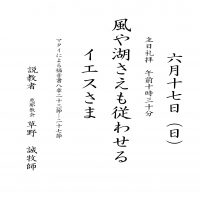 六月十七日（日）
主日礼拝 午前十時三十分
風や湖さえも従わせる
イエスさま
マタイによる福音書八章二十三節―二十七節
説教者
草野 誠牧師